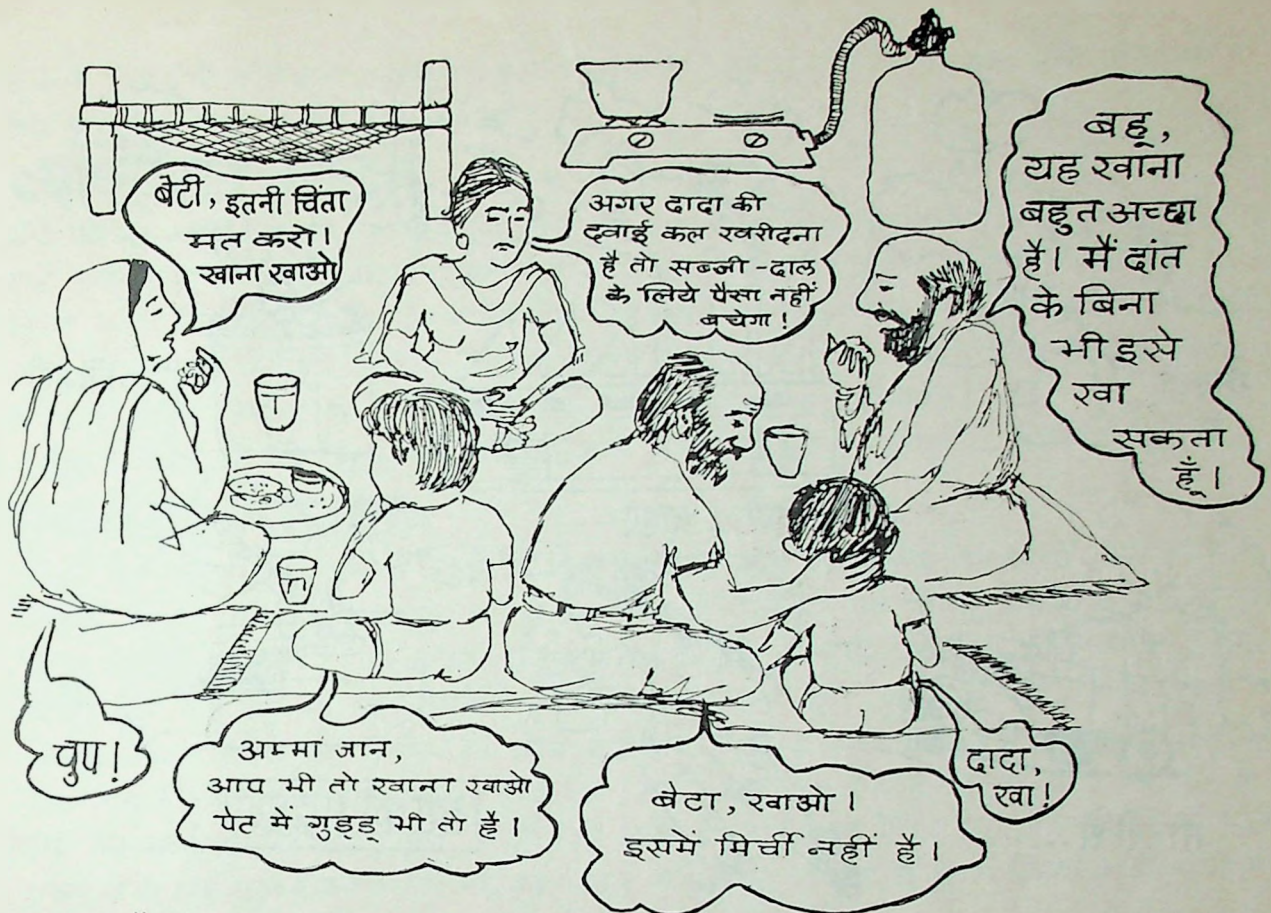 बेटी, इतनी चिंता
मत करो।
खाना खाओ
अगर दादा की
दवाई कल खरीदना
है तो सब्जी-दाल
के लिये पैसा नहीं
बचेगा!
बहू,
यह खाना
बहुत अच्छा
है। मैं दांत
के बिना
भी इसे
खा
सकता
हूँ।
चुप!
अम्मां जान,
आप भी तो खाना खाओ
पेट में गुड्डू भी तो है।
बेटा, खाओ।
इसमें मिर्ची नहीं है।
दादा,
खा!